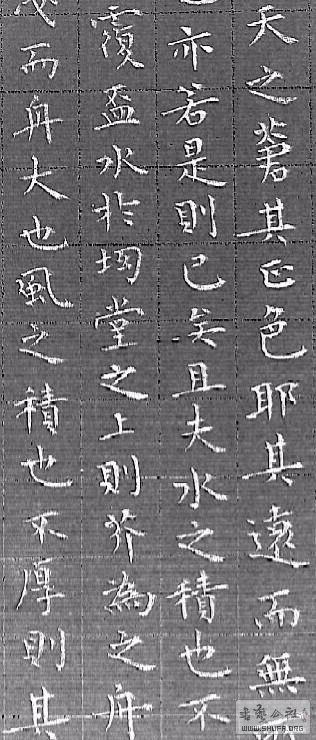 天之蒼其正色耶其遠而無
亦若是則已矣且夫水之積也不
覆盃水於坳堂之上則芥為之舟
而舟大也風之積也不厚則其
书艺公社
WWW.SHUFA.ORG